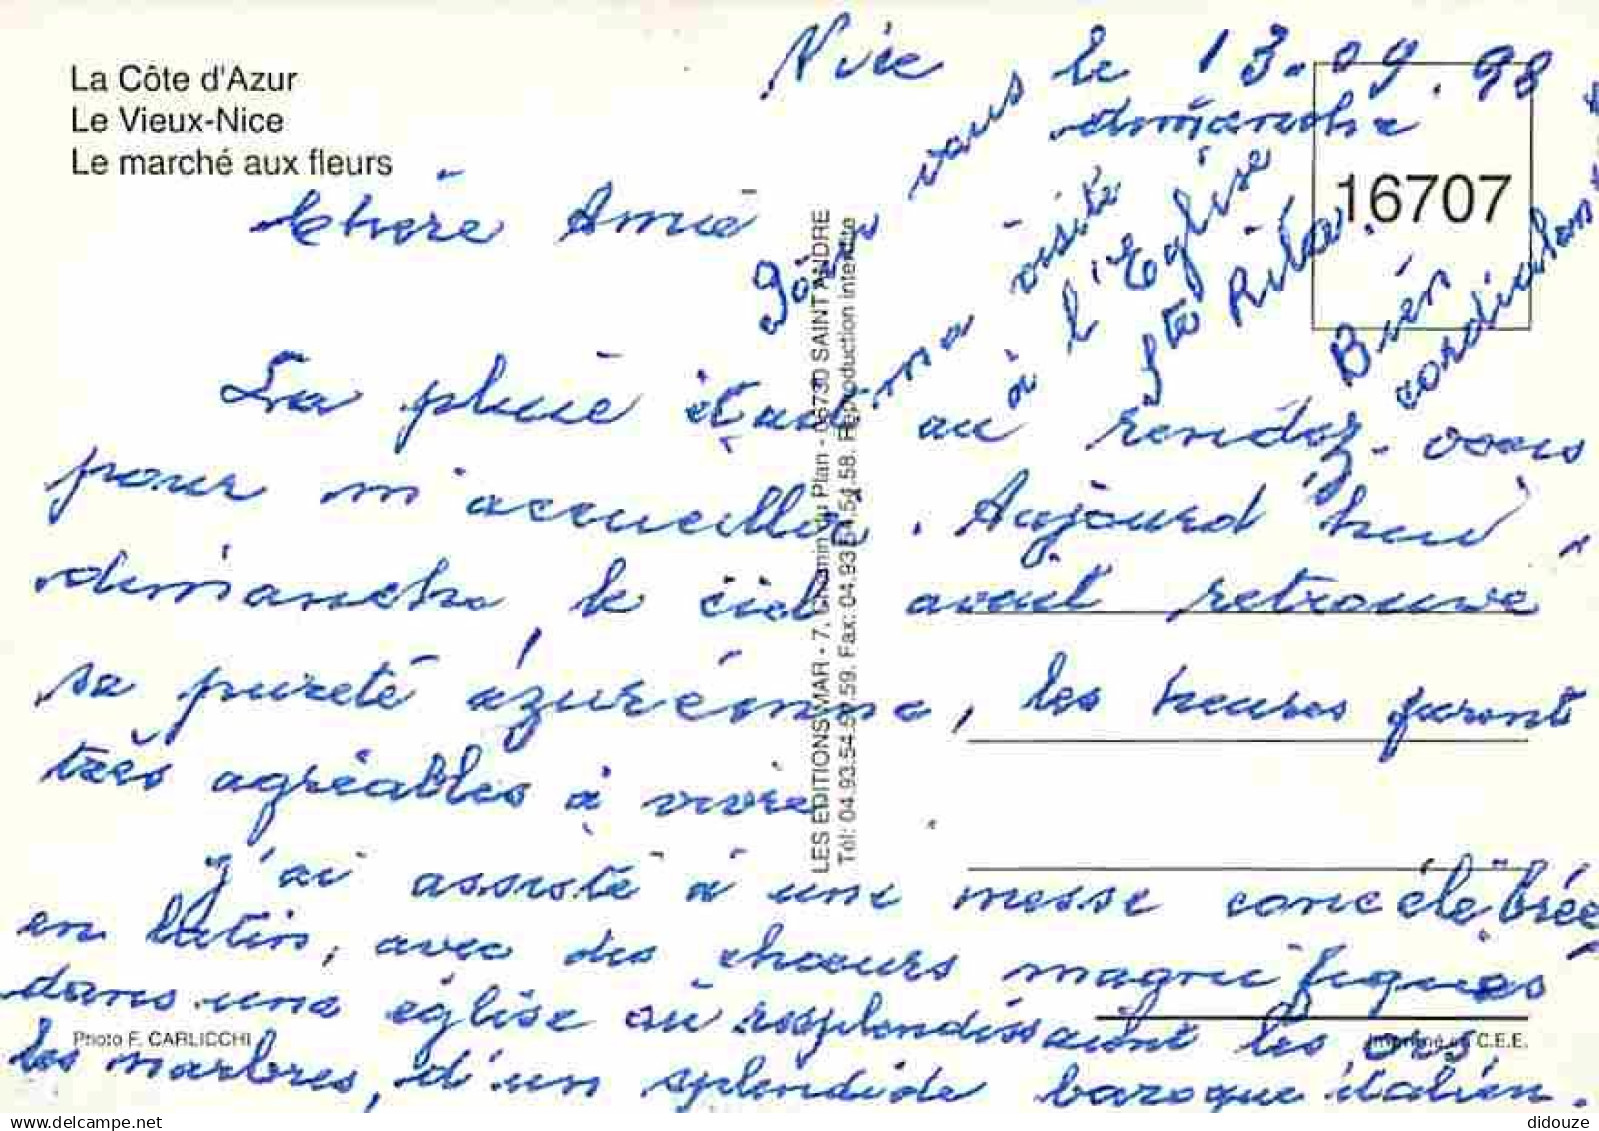 La Côte d'Azur
Le Vieux-Nice
Le marché aux fleurs
Nice le 13.09.98
dimanche
16707
Chère Amie
La pluie était au rendez-vous
pour m'accueillir. Aujourd'hui,
dimanche, le ciel avait retrouvé
sa pureté azuréenne, les heures furent
très agréables à vivre
J'ai assisté à une messe concélébrée
en latin, avec des chœurs magnifiques
dans une église où resplendissaient les ors,
les marbres, d'un splendide baroque italien.
vous
ma visite
à l'Eglise
Ste Rita.
Bien
cordialement
LES EDITIONS MAR - 7, Chemin du Plan - 06730 SAINT ANDRE
Tél: 04.93.54. .59. Fax: 04.93.54.54.58. Reproduction interdite
Photo F. CARLICCHI
Imprimé en C.E.E.
delcampe.net
didouze